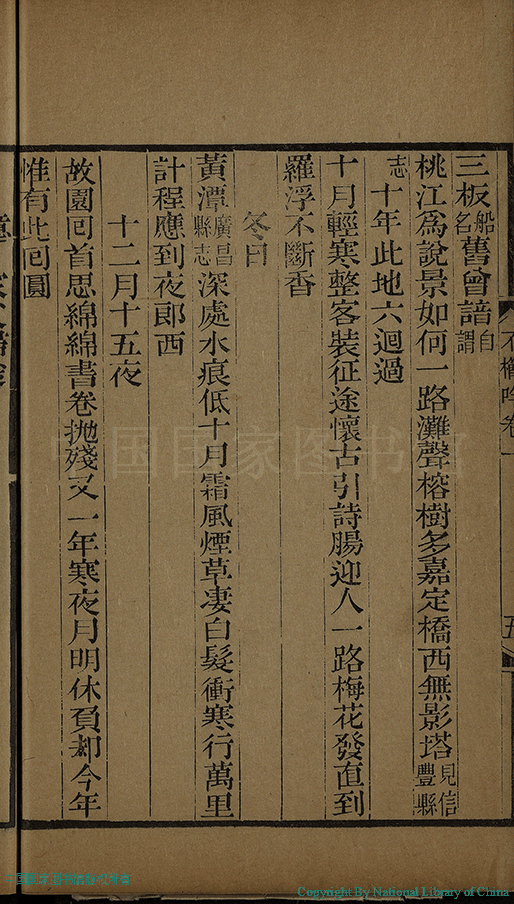 三板船名舊曾諳自謂
桃江爲說景如何一路灘聲榕樹多嘉定橋西無影塔見信豐縣
志十年此地六迴過
十月輕寒整客裝征途懷古引詩腸迎人一路梅花發直到
羅浮不斷香
冬日
黃潭廣昌縣志深處水痕低十月霜風煙草凄白髮衝寒行萬里
計程應到夜郎西
十二月十五夜
故園回首思綿綿書卷拋殘又一年寒夜月明休負却今年
惟有此回圓
卷一
五
中国国家图书馆
Copyright By National Library of China